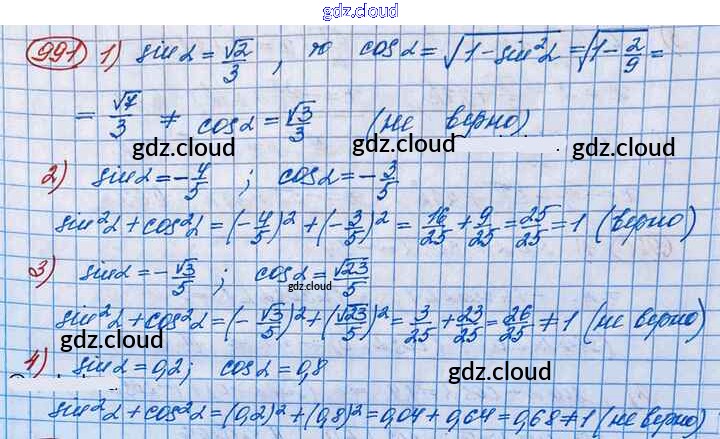 gdz.cloud
991 1) sin α = √2/3 , то cos α = √(1 − sin²α) = √(1 − 2/9) =
= √7/3 ≠ cos α = √3/3 (не верно)
gdz.cloud gdz.cloud
2) sin α = −4/5 ; cos α = −3/5
gdz.cloud
sin²α + cos²α = (−4/5)² + (−3/5)² = 16/25 + 9/25 = 25/25 = 1 (верно)
3) sin α = −√3/5 ; cos α = √23/5
gdz.cloud
sin²α + cos²α = (−√3/5)² + (√23/5)² = 3/25 + 23/25 = 26/25 ≠ 1 (не верно)
gdz.cloud
4) sin α = 0,2; cos α = 0,8
gdz.cloud
sin²α + cos²α = (0,2)² + (0,8)² = 0,04 + 0,64 = 0,68 ≠ 1 (не верно)